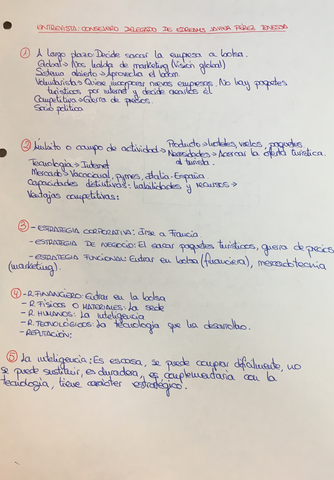 ENTREVISTA: CONSEJERO DELEGADO DE EDREAMS JAVIER PÉREZ TENESSA
① A largo plazo: Decide sacar la empresa a bolsa.
Global → Nos habla de marketing (Visión global)
Sistema abierto → Aprovecha el boom.
Voluntarista → Quiere incorporar nuevas empresas. No hay paquetes
turísticos por internet y decide hacerlos él.
Competitiva → Guerra de precios.
Socio político
② Ámbito o campo de actividad → Producto → hoteles, vuelos, paquetes
→ Necesidades → Acercar la oferta turística.
al turista.
Tecnología → Internet
Mercado → Vacacional, pymes, Italia-España
Capacidades distintivas: habilidades y recursos →
Ventajas competitivas:
③ - ESTRATEGIA CORPORATIVA: Irse a Francia.
- ESTRATEGIA DE NEGOCIO: El sacar paquetes turísticos, guerra de precios
- ESTRATEGIA FUNCIONAL: Entrar en bolsa (financiera), mercadotecnia
(marketing).
④ - R. FINANCIERO: Entrar en la bolsa
- R. FÍSICOS O MATERIALES: La sede
- R. HUMANOS: La inteligencia
- R. TECNOLÓGICOS: La tecnología que ha desarrollado.
- REPUTACIÓN:
⑤ La inteligencia: Es escasa, se puede comprar difícilmente, no
se puede sustituir, es duradera, es complementaria con la
tecnología, tiene carácter estratégico.